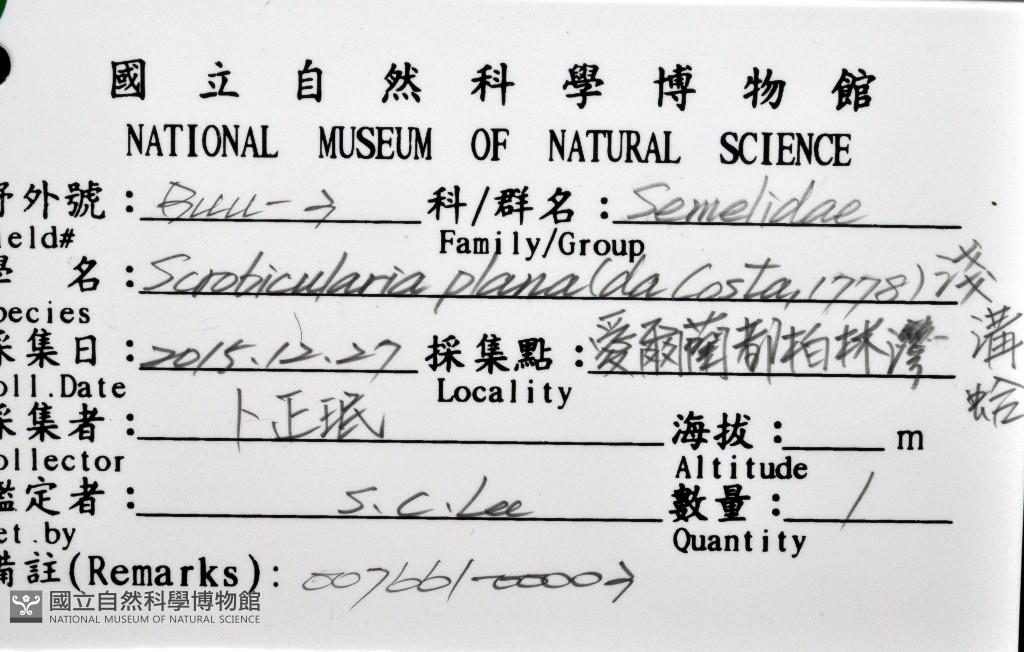 國立自然科學博物館
NATIONAL MUSEUM OF NATURAL SCIENCE
野外號： 科/群名：Semelidae
ield# Family/Group
學名：Scrobicularia plana (da Costa, 1778) 淺溝蛤
pecies
採集日：2015.12.27 採集點：愛爾蘭都柏林灣
oll.Date Locality
採集者：卜正珉 海拔： m
ollector Altitude
鑑定者：S.C.Lee 數量：1
et.by Quantity
備註(Remarks):
國立自然科學博物館
NATIONAL MUSEUM OF NATURAL SCIENCE